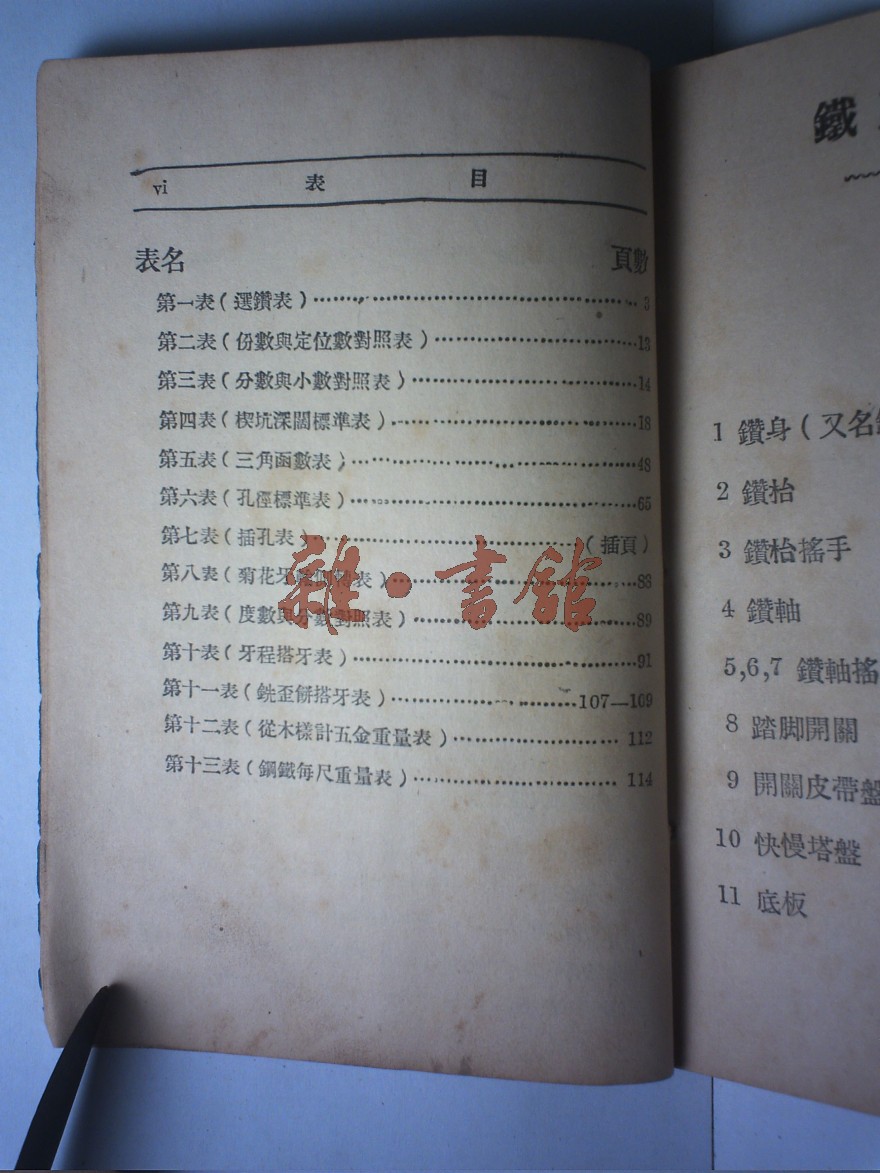 vi 表 目
表名 頁數
第一表(選鑽表)……3
第二表(份數與定位數對照表)……13
第三表(分數與小數對照表)……14
第四表(楔坑深闊標準表)……18
第五表(三角函數表)……48
第六表(孔徑標準表)……65
第七表(插孔表)……(插頁)
第八表(菊花牙 表)……83
第九表(度數與分數對照表)……89
第十表(牙程搭牙表)……91
第十一表(銑歪餅搭牙表)……107—109
第十二表(從木樣計五金重量表)……112
第十三表(鋼鐵每尺重量表)……114
雜·書館
鐵
1 鑽身(又名
2 鑽枱
3 鑽枱搖手
4 鑽軸
5,6,7 鑽軸搖
8 踏脚開關
9 開關皮帶盤
10 快慢塔盤
11 底板